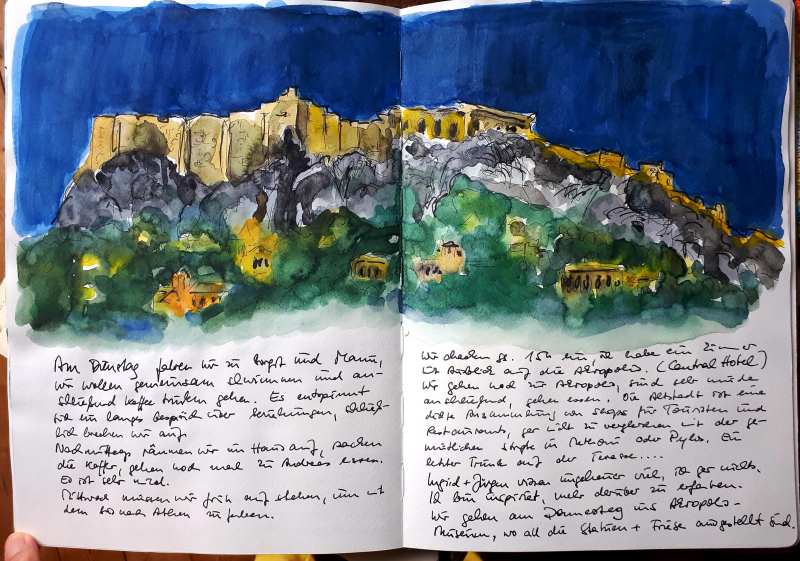 Am Dienstag fahren wir zu Birgit und Manni,
wir wollen gemeinsam schwimmen und an-
schließend Kaffee trinken gehen. Es entspinnt
sich ein langes Gespräch über Beziehungen, schließ-
lich brechen wir auf.
Nachmittags räumen wir im Haus auf, packen
die Koffer, gehen noch mal zu Andreas essen.
Es ist sehr
Mittwoch müssen wir früh aufstehen, um mit
dem Bus nach Athen zu fahren.
Wir checken ge. 15h ein, ich habe ein Zimmer
mit Ausblick auf die Akropolis. (Central Hotel)
Wir gehen noch zur Akropolis, sind sehr müde
anschließend, gehen essen. Die Altstadt ist eine
dichte Ansammlung von Shops für Touristen und
Restaurants, gar nicht zu vergleichen mit der ge-
mütlichen in oder Pylos. Ein
letzter Trunk auf der Terasse....
Ingrid + Jürgen wissen ungeheuer viel, ich gar nichts.
Ich bin inspiriert, mehr darüber zu erfahren.
Wir gehen am Donnerstag ins Akropolis-
Museum, wo all die Statuen + Friese ausgestellt sind.